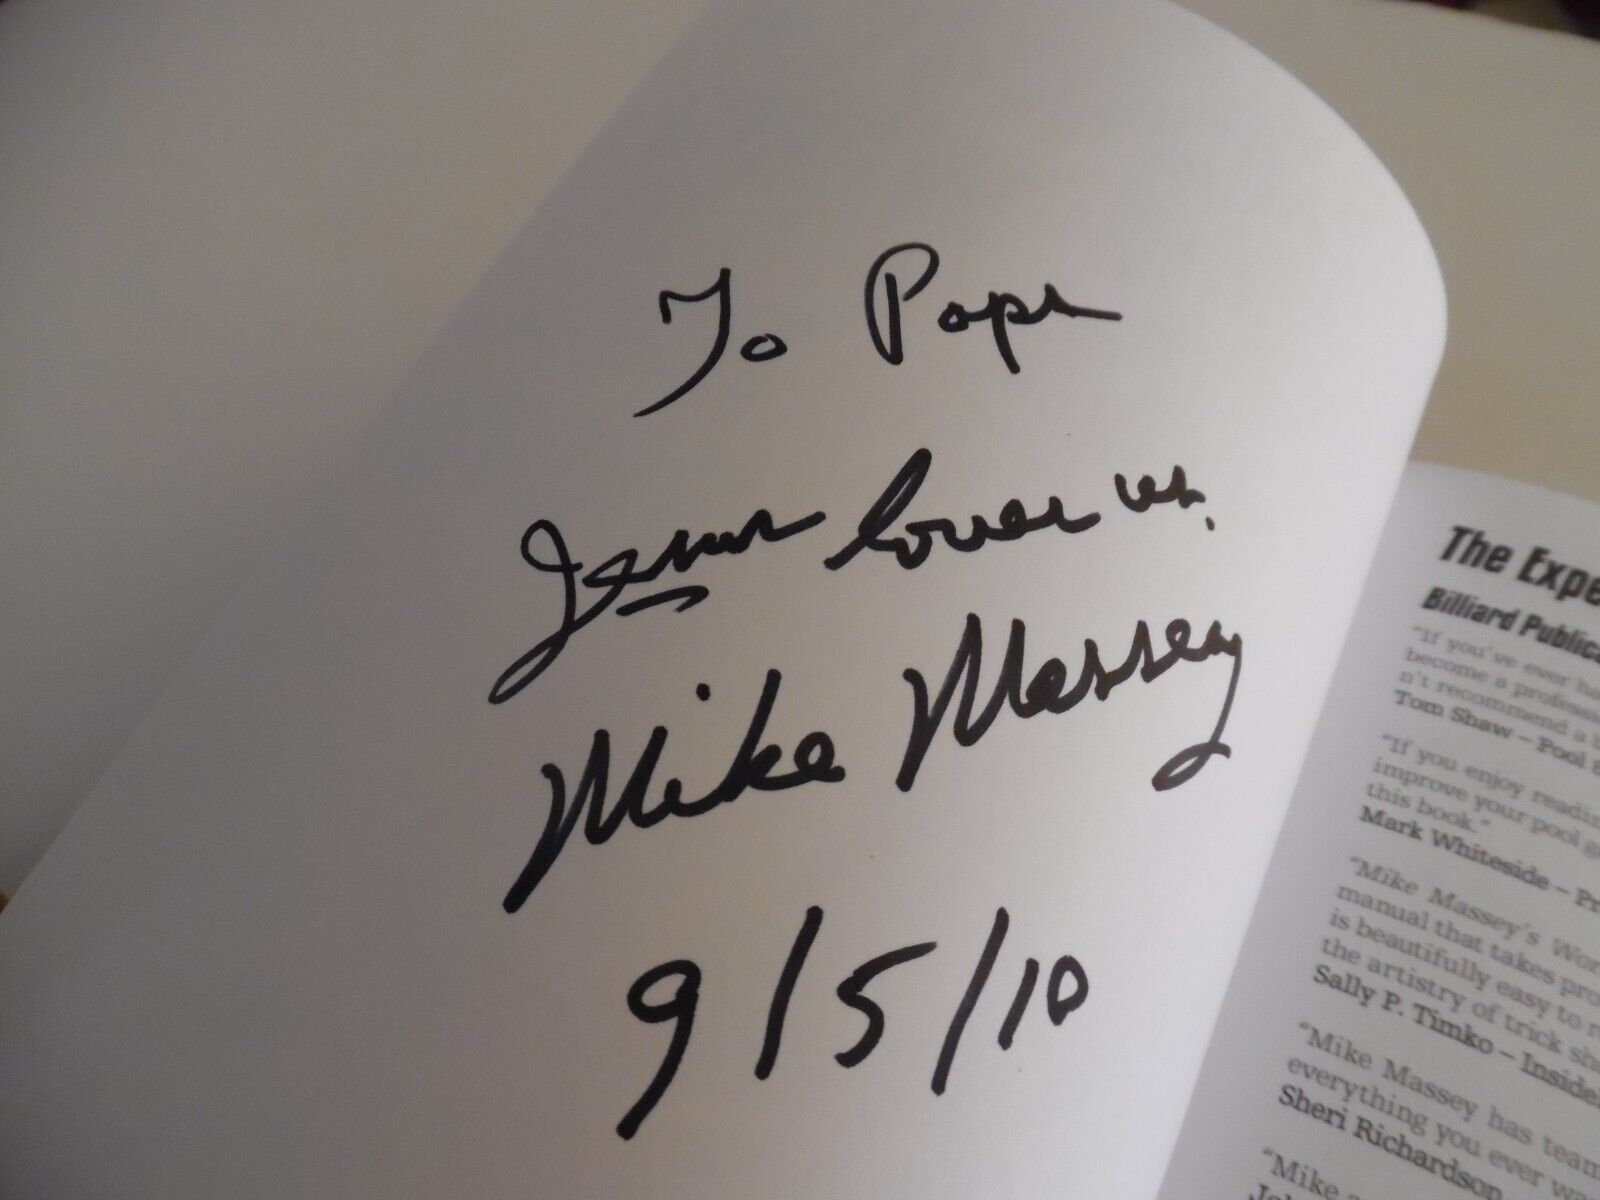 To Pops
Jesus loves us.
Mike Massey
9/5/10
The Expe
Billiard Publica
"If you've ever ha
become a profession
n't recommend a b
Tom Shaw – Pool &
"If you enjoy readin
improve your pool g
this book."
Mark Whiteside – Pr
"Mike Massey's Wor
manual that takes pro
is beautifully easy to r
the artistry of trick sh
Sally P. Timko – Inside
"Mike Massey has team
everything you ever wa
Sheri Richardson
"Mike